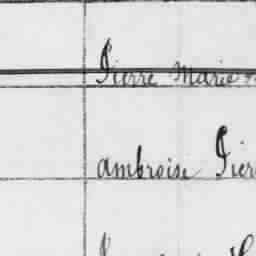 Pierre Marie
ambroise Pier